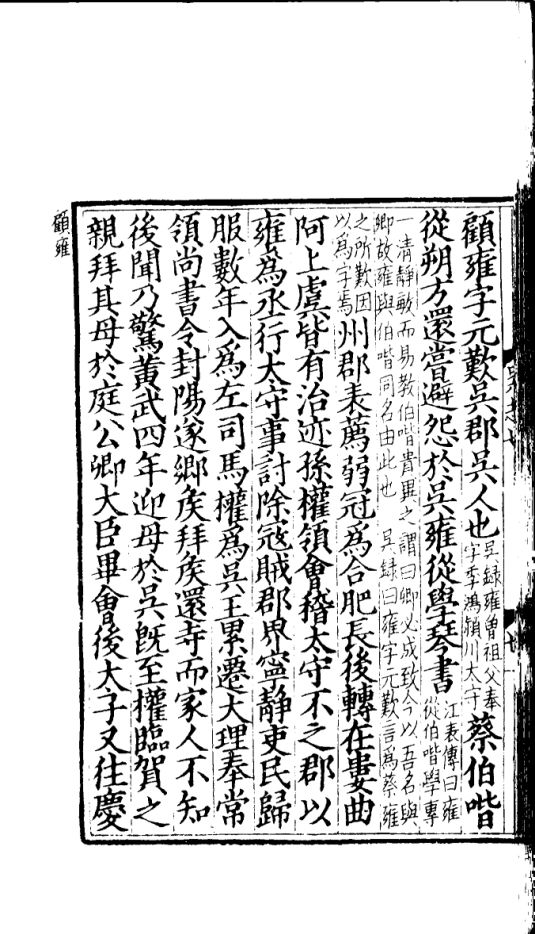 顧雍字元歎吳郡吳人也吳録雍曾祖父奉字季鴻潁川太守蔡伯喈
從朔方還嘗避怨於吳雍從學琴書江表傳曰雍從伯喈學專
一清静敏而易教伯喈貴異之謂曰卿必成致今以吾名與卿故雍與伯喈同名由此也　吳録曰雍字元歎言爲蔡雍
之所歎因以爲字焉州郡表薦弱冠爲合肥長後轉在婁曲
阿上虞皆有治迹孫權領會稽太守不之郡以
雍爲丞行太守事討除寇賊郡界寧静吏民歸
服數年入爲左司馬權爲吳王累遷大理奉常
領尚書令封陽遂鄉矦拜矦還寺而家人不知
後聞乃驚黄武四年迎母於吳旣至權臨賀之
親拜其母於庭公卿大臣畢會後太子又往慶
顧雍